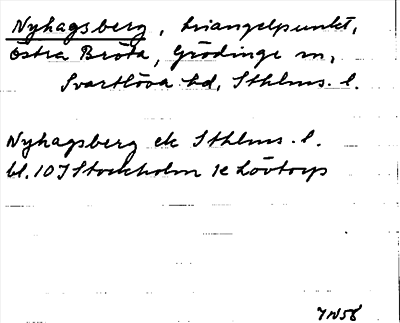 Nyhagsberg, triangelpunkt,
Östra Bröta, Grödinge sn,
Svartlösa hd, Sthlms. l.
Nyhagsberg ek Sthlms. l.
bl. 10 I Stockholm 1e Lövtorp